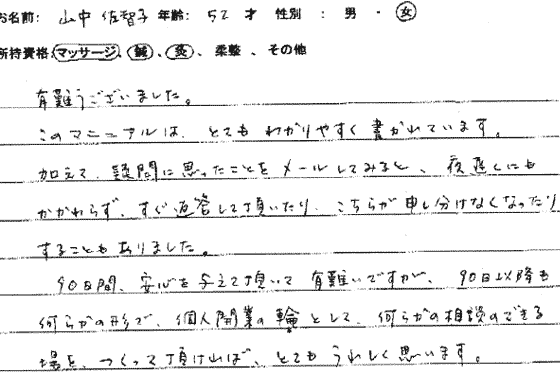 お名前: 山中 佐智子 年齢: 52 才 性別 : 男 ・ 女
所持資格: マッサージ、鍼、灸、柔整 、その他
有難うございました。
このマニュアルは、とてもわかりやすく書かれています。
加えて、疑問に思ったことをメールしてみると、夜遅くにも
かかわらず、すぐ返答して頂いたり、こちらが申し分けなくなったり
することもありました。
90日間、安心を与えて頂いて有難いですが、90日以降も
何らかの形で、個人開業の輪として、何らかの相談のできる
場を、つくって頂ければ、とてもうれしく思います。